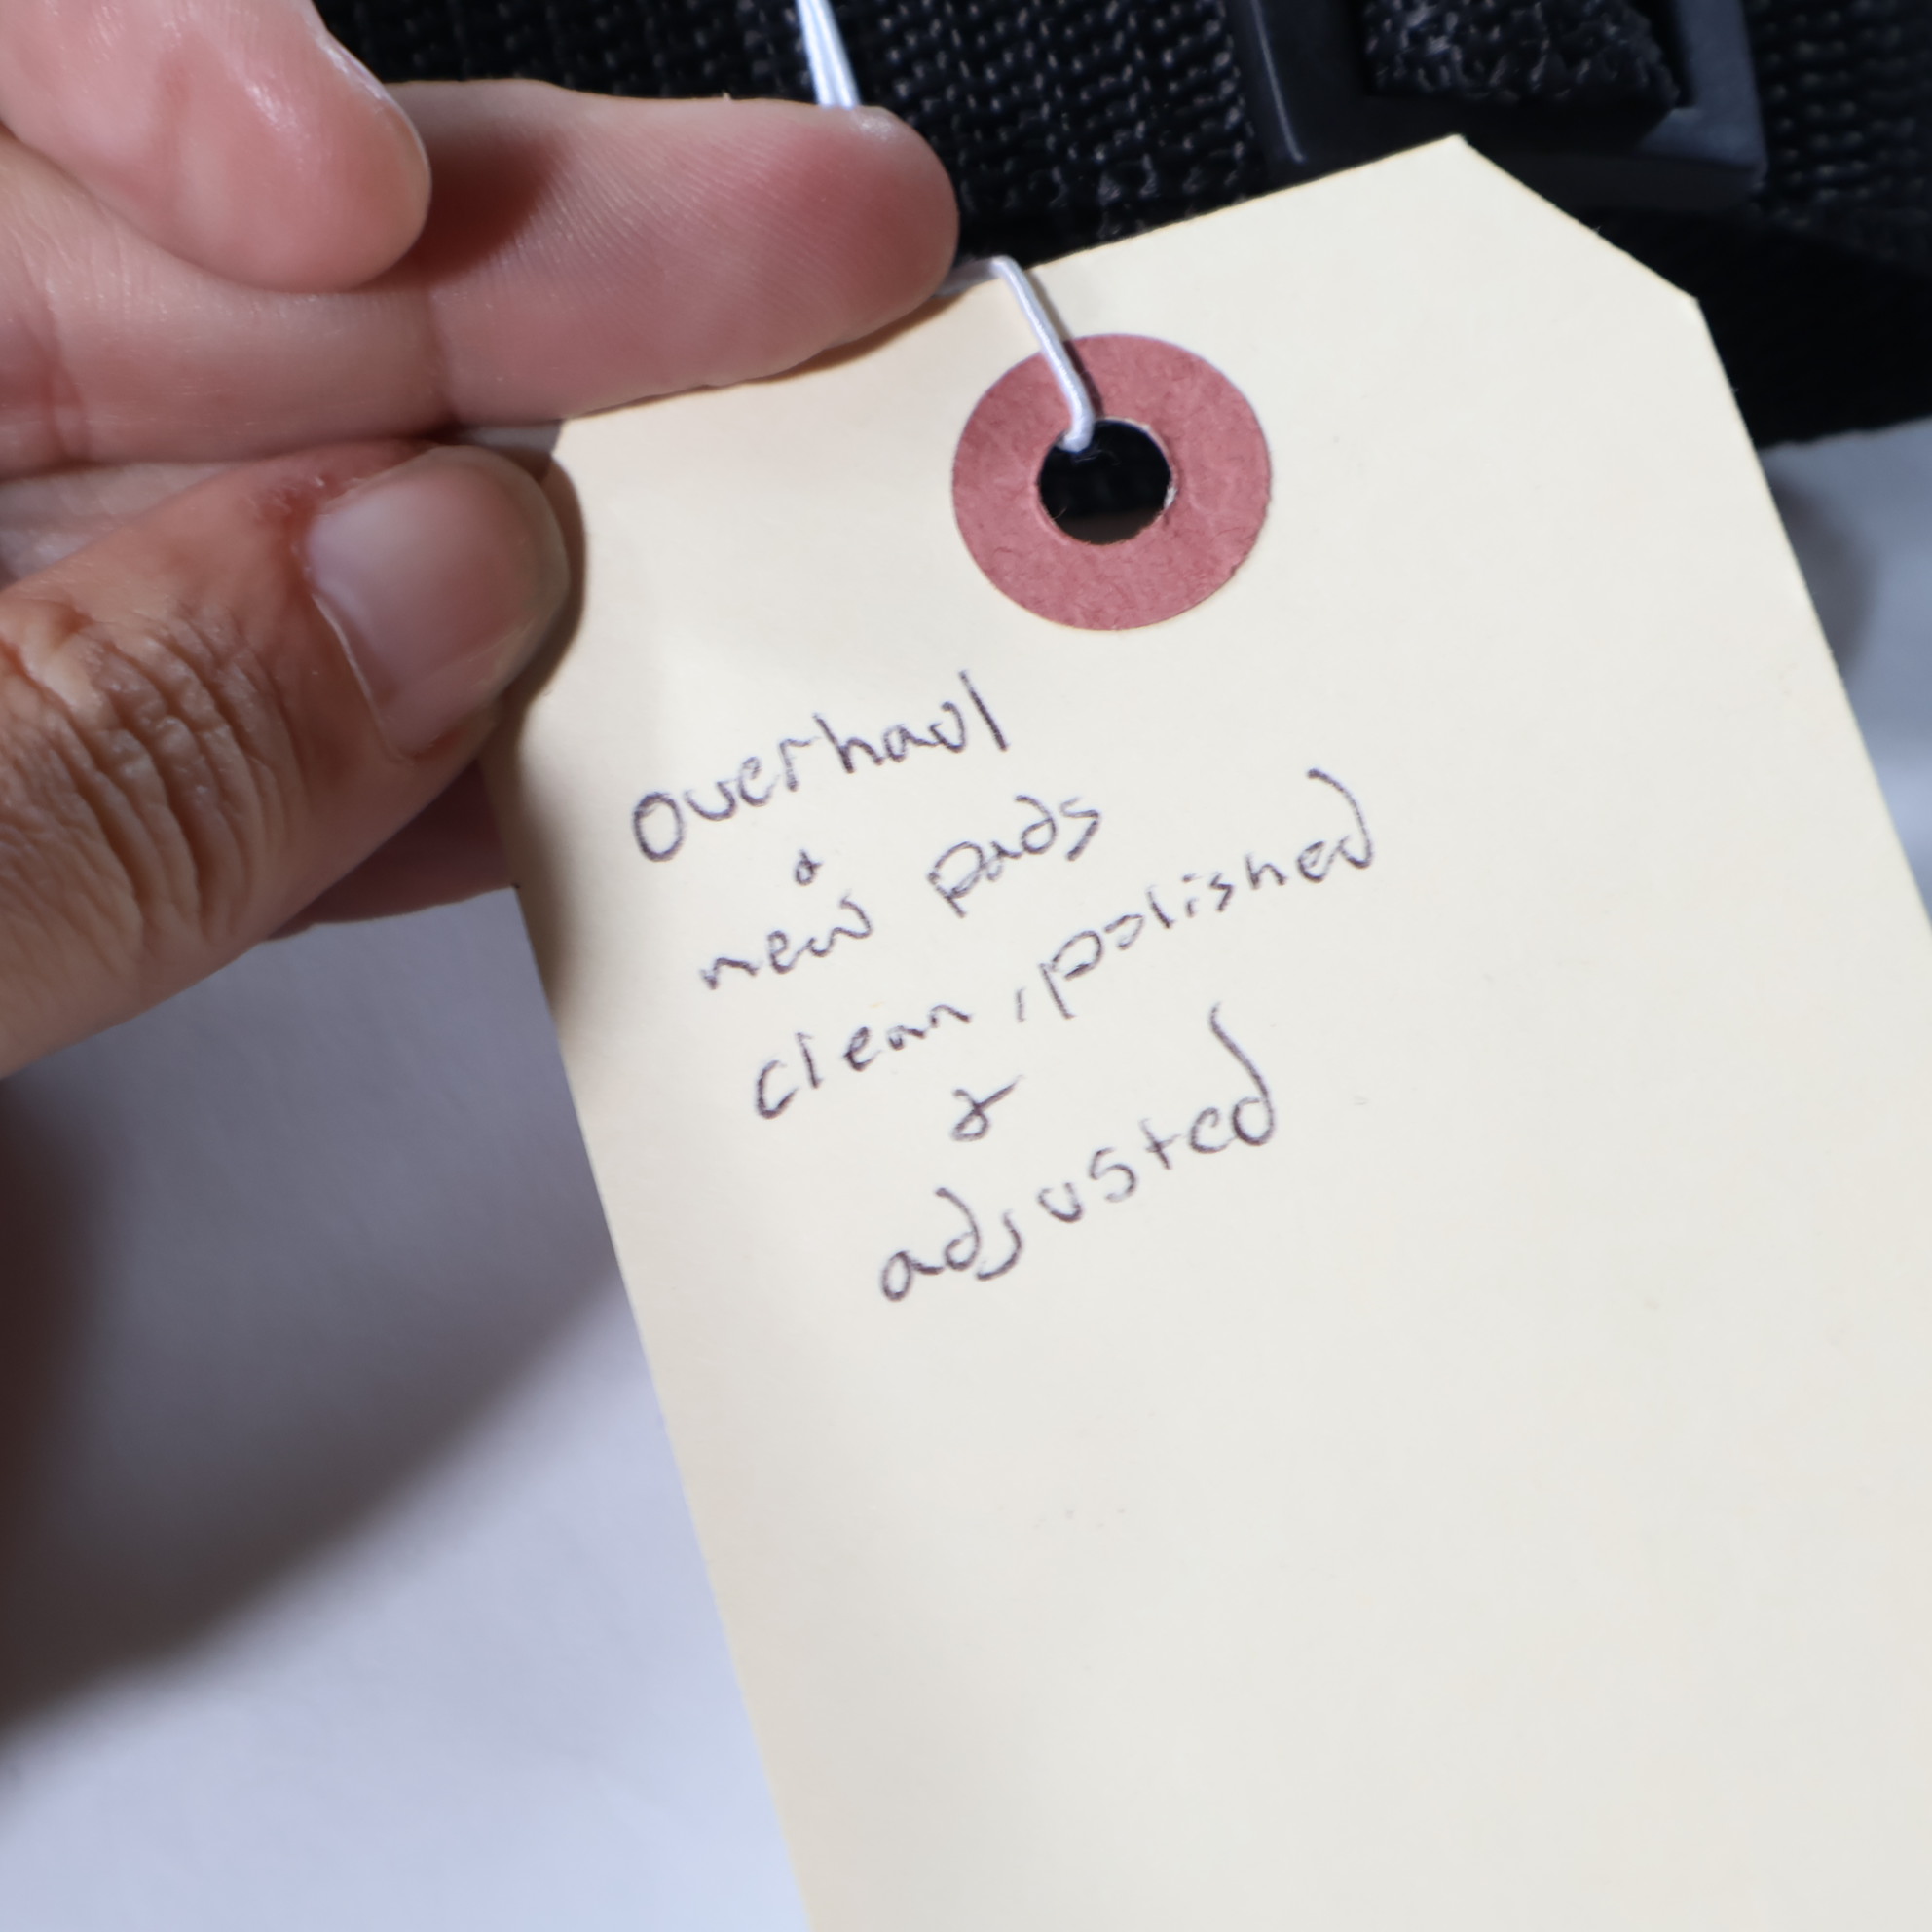 overhaul
&
new pads
clean, polished
&
adjusted